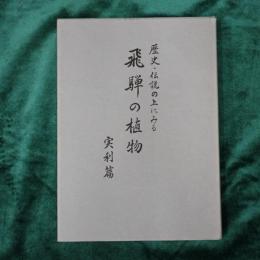 歴史・伝説の上にみる
飛騨の植物
実利篇